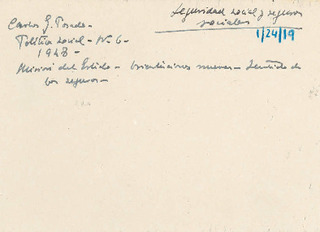 Seguridad social y seguros
sociales
1/24/19
Carlos G. Posada-
Política social - Nº 6-
1948-
Misión del Estado - Orientaciones nuevas - Sentido de
los seguros-